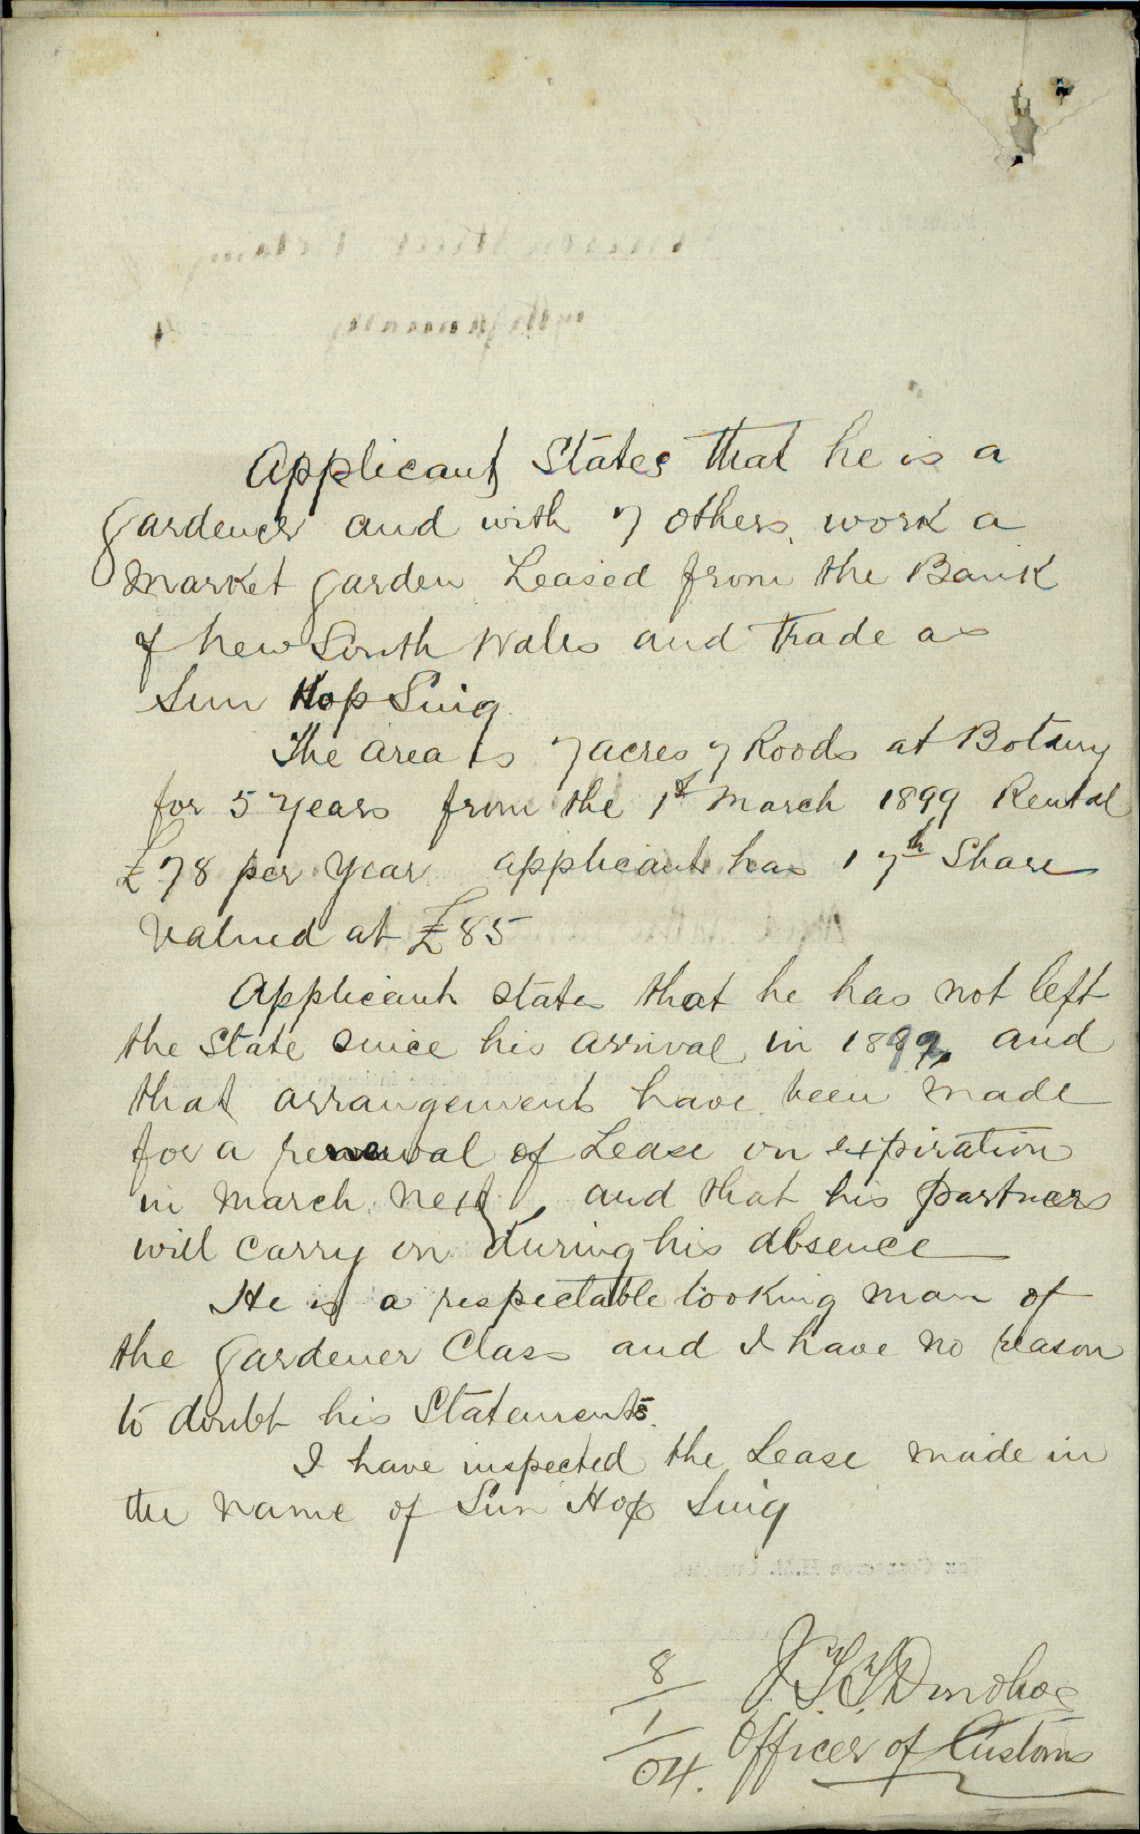 Applicant States that he is a
gardener and with 7 others, work a
Market garden Leased from the Bank
of New South Wales and trade as
Sun Hop Sing
The area is 7 acres 7 Roods at Botany
for 5 years from the 1st March 1899 Rental
£78 per year applicant has 1 7th Share
valued at £85
Applicant states that he has not left
the State since his arrival in 1899, and
that arrangements have been made
for a renewal of Lease on expiration
in March next, and that his partners
will carry on during his absence
He is a respectable looking man of
the gardener Class and I have no reason
to doubt his Statements.
I have inspected the Lease made in
the name of Sun Hop Sing
8/1/04. J.T.T. Donohoe
Officer of Customs